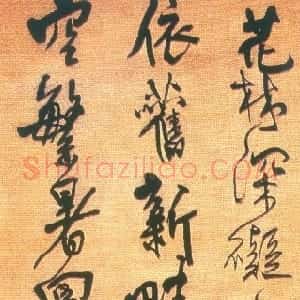 花枝深礙
依舊新晴
空繁暑
Shufaziliao.COM